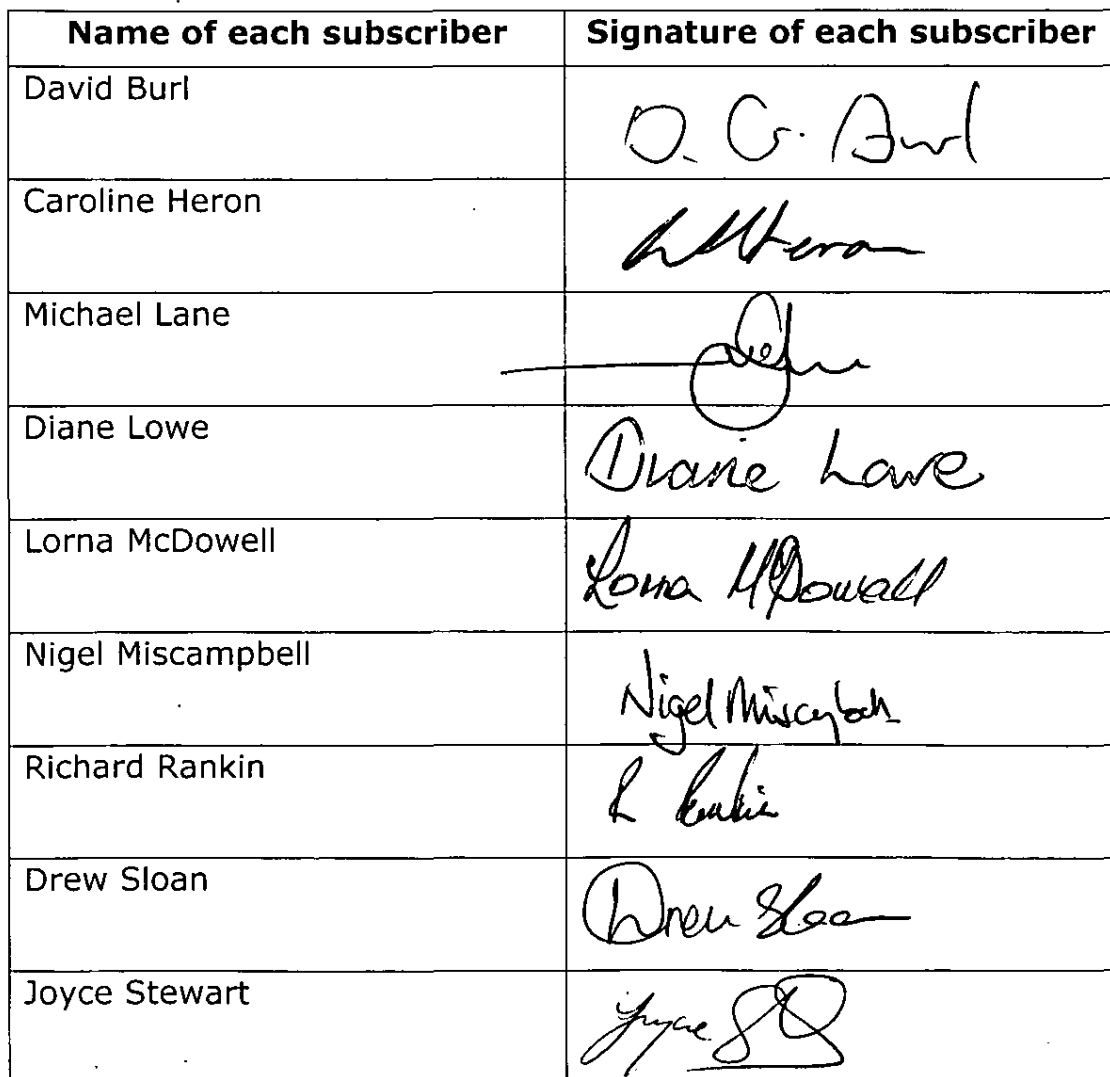 Name of each subscriber Signature of each subscriber
David Burl D. G. Burl
Caroline Heron Heron
Michael Lane
Diane Lowe Diane Lowe
Lorna McDowell Lorna McDowell
Nigel Miscampbell Nigel Miscampbell
Richard Rankin R Rankin
Drew Sloan Drew Sloan
Joyce Stewart Joyce